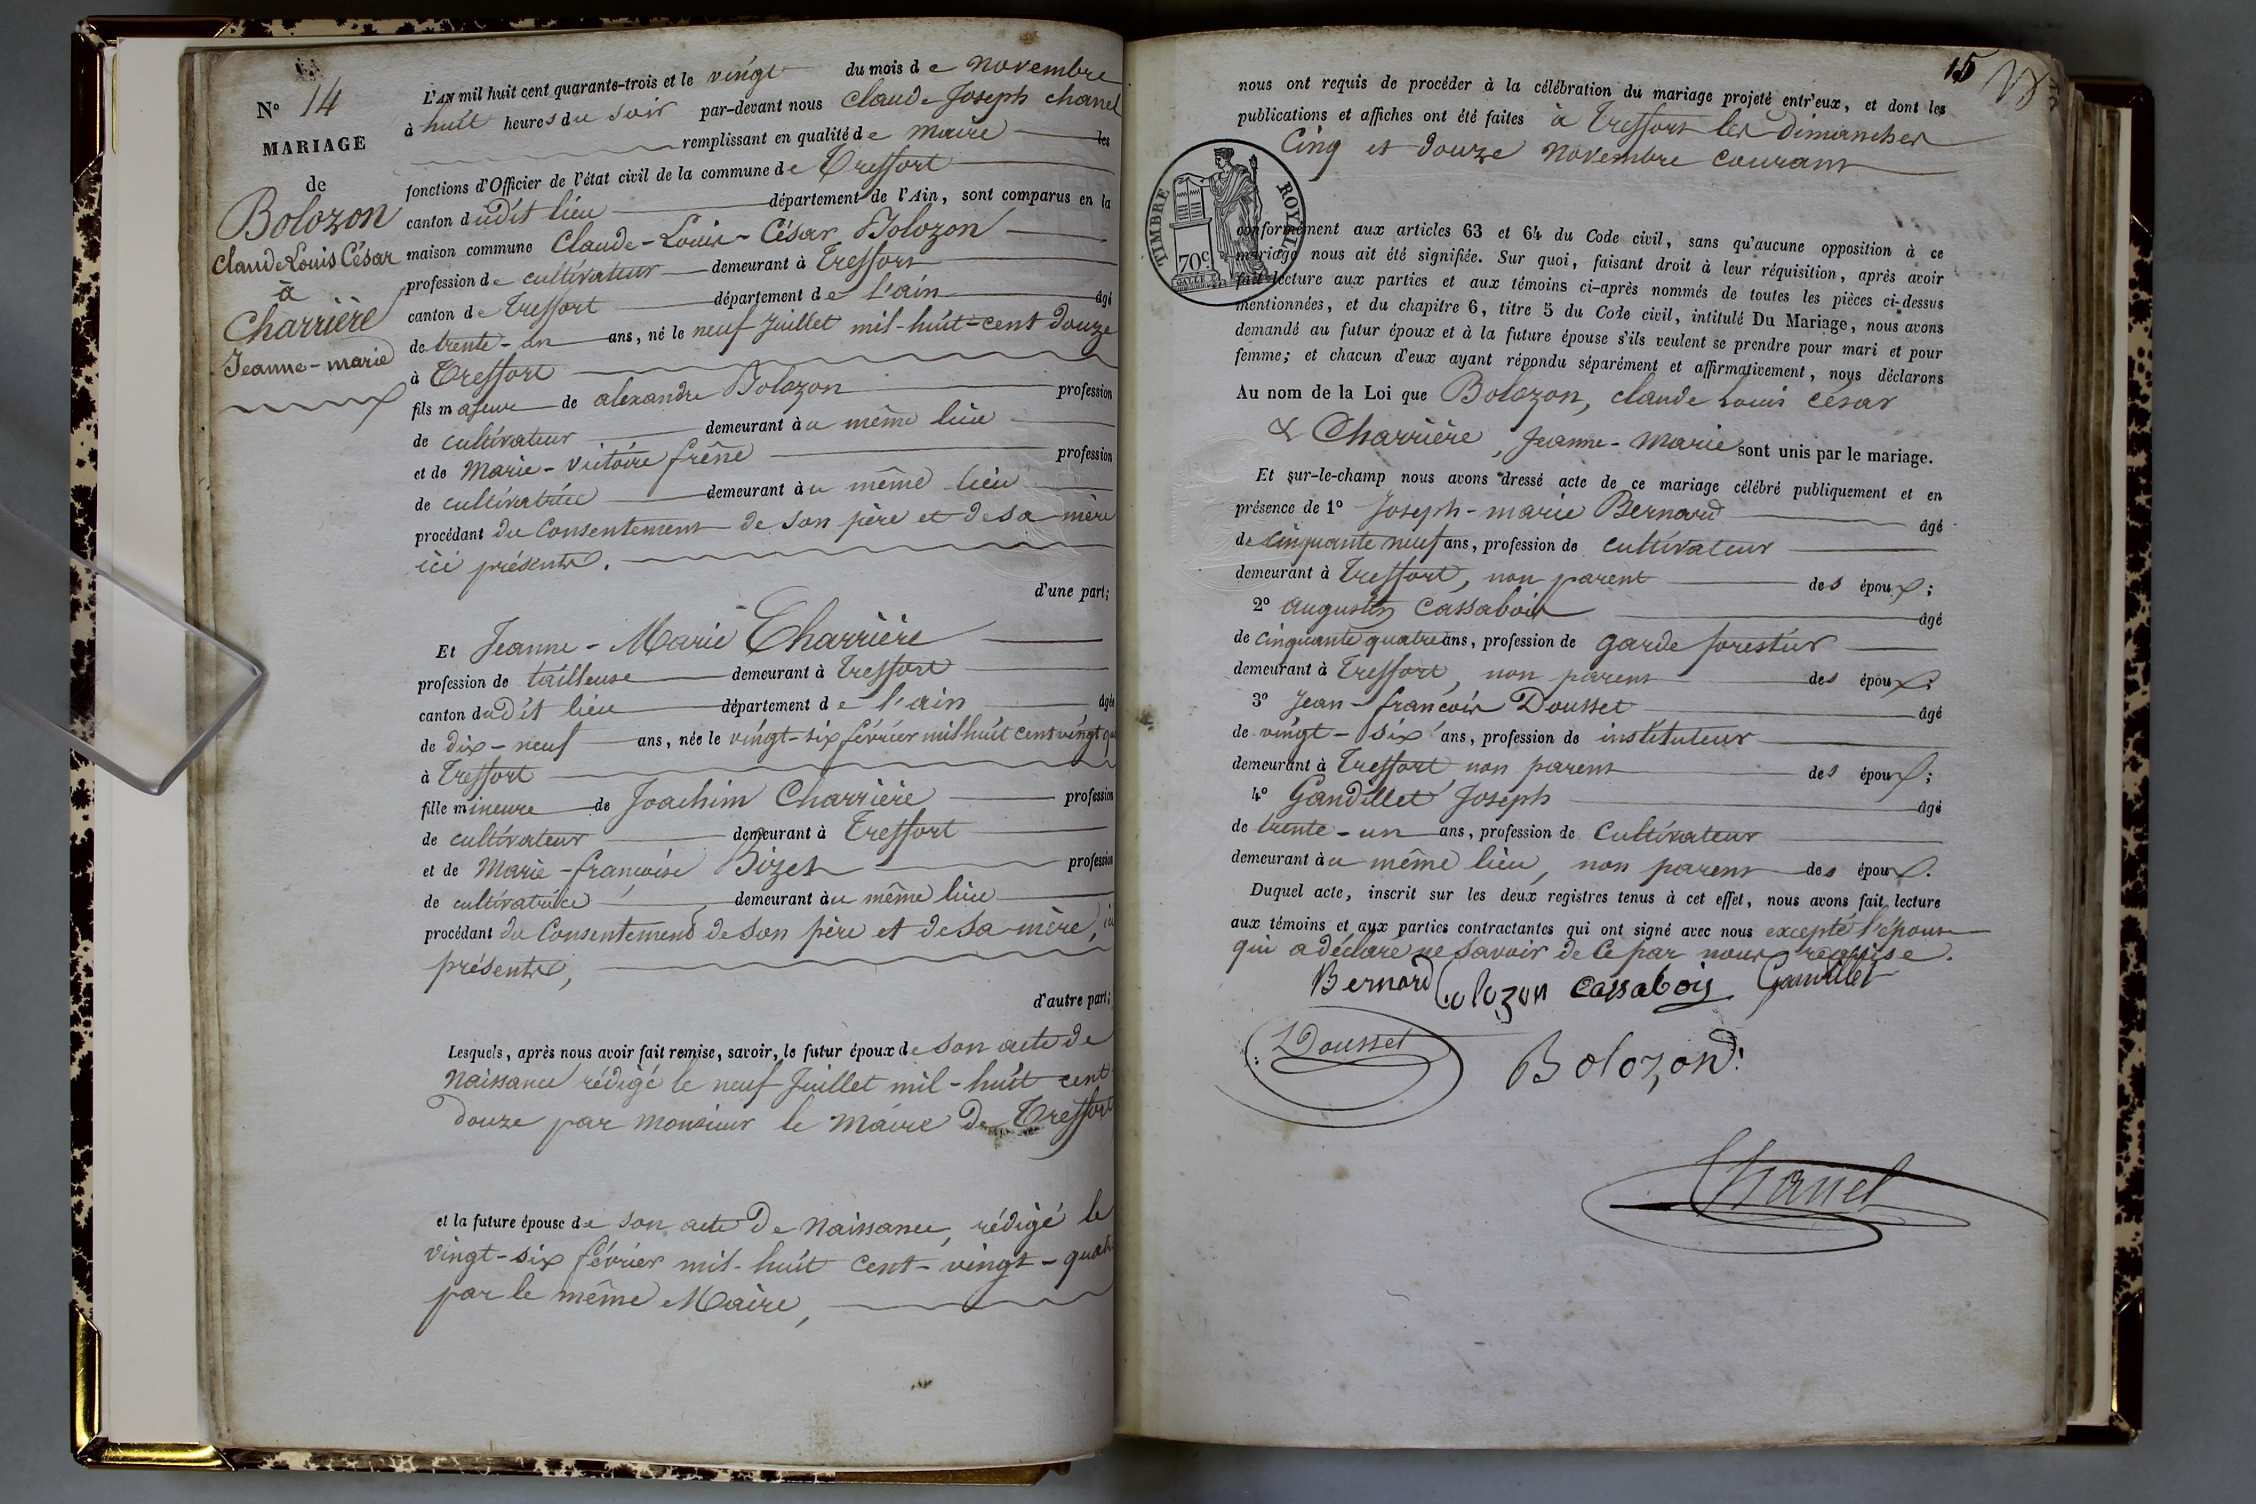 N° 14
MARIAGE
de
Bolozon
Claude Louis César
à
Charrière
Jeanne-marie
L'AN mil huit cent quarante-trois et le vingt du mois de novembre
à huit heures du soir par-devant nous Claude Joseph Chanel
remplissant en qualité de maire les
fonctions d'Officier de l'état civil de la commune de Treffort
canton dudit lieu département de l'Ain, sont comparus en la
maison commune Claude-Louis-César Bolozon
profession de cultivateur demeurant à Treffort
canton de Treffort département de l'ain âgé
de trente-un ans, né le neuf Juillet mil-huit-cent douze
à Treffort
fils majeur de alexandre Bolozon profession
de cultivateur demeurant au même lieu
et de Marie-Victoire frêne profession
de cultivatrice demeurant au même lieu
procédant du Consentement de son père et de sa mère
ici présents.
d'une part;
Et Jeanne-Marie Charrière
profession de tailleuse demeurant à Treffort
canton dudit lieu département de l'ain âgée
de dix-neuf ans, née le vingt-six février mil huit cent vingt qu
à Treffort
fille mineure de Joachim Charrière profession
de cultivateur demeurant à Treffort
et de Marie-françoise Bizet profession
de cultivatrice demeurant au même lieu
procédant du Consentement de son père et de sa mère, ici
présents,
d'autre part;
Lesquels, après nous avoir fait remise, savoir, le futur époux de son acte de
Naissance rédigé le neuf Juillet mil-huit cent
douze par monsieur le maire de Treffort
et la future épouse de son acte de Naissance, rédigé le
vingt-six février mil-huit cent-vingt-quatre
par le même Maire,
15
nous ont requis de procéder à la célébration du mariage projeté entr'eux, et dont les
publications et affiches ont été faites à Treffort les dimanches
Cinq et douze novembre courant
TIMBRE ROYAL
70c.
conformément aux articles 63 et 64 du Code civil, sans qu'aucune opposition à ce
mariage nous ait été signifiée. Sur quoi, faisant droit à leur réquisition, après avoir
fait lecture aux parties et aux témoins ci-après nommés de toutes les pièces ci-dessus
mentionnées, et du chapitre 6, titre 5 du Code civil, intitulé Du Mariage, nous avons
demandé au futur époux et à la future épouse s'ils veulent se prendre pour mari et pour
femme; et chacun d'eux ayant répondu séparément et affirmativement, nous déclarons
Au nom de la Loi que Bolozon, Claude Louis César
& Charrière, Jeanne-Marie sont unis par le mariage.
Et sur-le-champ nous avons dressé acte de ce mariage célébré publiquement et en
présence de 1° Joseph-marie Bernard âgé
de Cinquante neuf ans, profession de cultivateur
demeurant à Treffort, non parent des époux;
2° Augustin Cassabois âgé
de Cinquante quatre ans, profession de garde forestier
demeurant à Treffort, non parent des époux;
3° Jean-françois Dousset âgé
de vingt-six ans, profession de instituteur
demeurant à Treffort non parent des époux;
4° Gandillet Joseph âgé
de trente-un ans, profession de Cultivateur
demeurant au même lieu, non parent des époux.
Duquel acte, inscrit sur les deux registres tenus à cet effet, nous avons fait lecture
aux témoins et aux parties contractantes qui ont signé avec nous excepté l'épouse
qui a déclaré ne savoir de ce par nous requise.
Bernard Bolozon Cassabois Gandillet
Dousset
Bolozon
Chanel